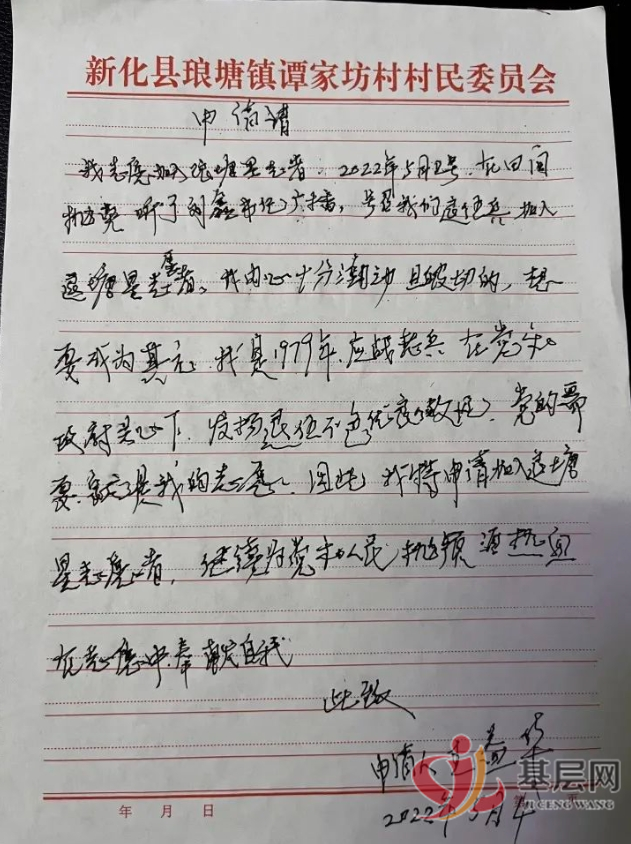 新化县琅塘镇谭家坊村村民委员会
申请
我志愿加入琅塘星志者. 2022年5月2号. 在田间
听了刘 书记广播, 号召我们退伍兵 加入
琅塘星志愿者。我内心十分激动 且 切的, 想
要成为其 . 我是1979年. 应战老兵 在党和
政府关心下. 发扬退伍不 色优 . 党的需
要. 是我的志愿. 因此, 我特申请加入琅塘
星志愿者, 继续为党和人民 热血
在志愿中奉献自我
此致
申请人 王益华
2022年5月
年 月 日
基层网
JI CENG WANG